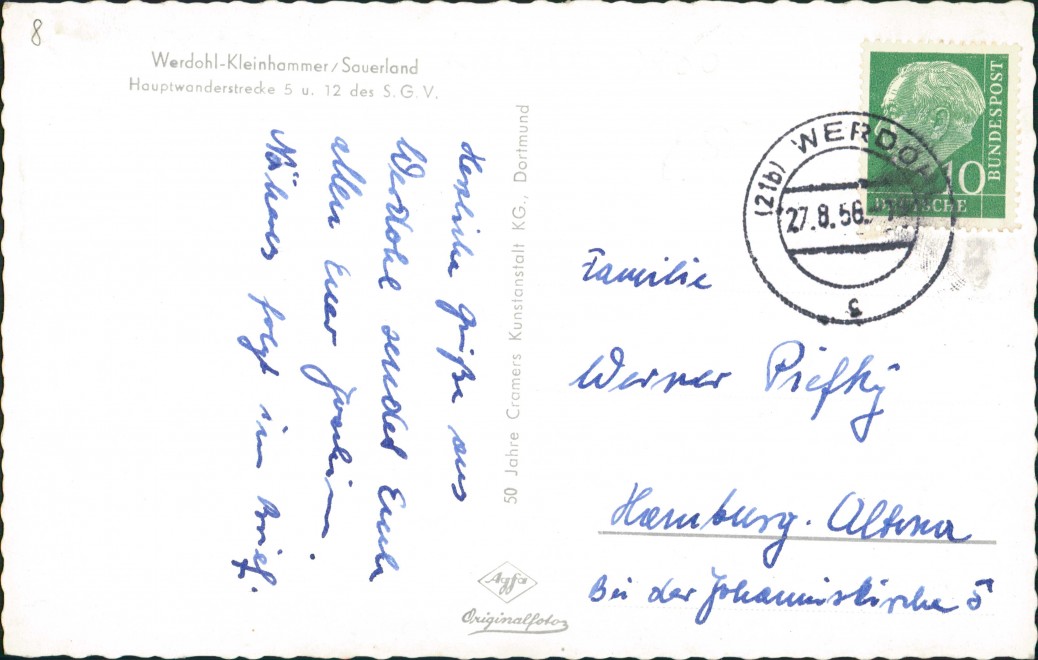 8
Werdohl-Kleinhammer/Sauerland
Hauptwanderstrecke 5 u. 12 des S.G.V.
Herzliche Grüße aus
Werdohl sendet Euch
allen Euer Joachim.
Näheres folgt im Brief.
50 Jahre Cramers Kunstanstalt KG., Dortmund
Agfa
Originalfoto
DEUTSCHE
BUNDESPOST
10
(21b) WERDOHL
27.8.56.
c
Familie
Werner Piefky
Hamburg-Altona
Bei der Johanniskirche 5